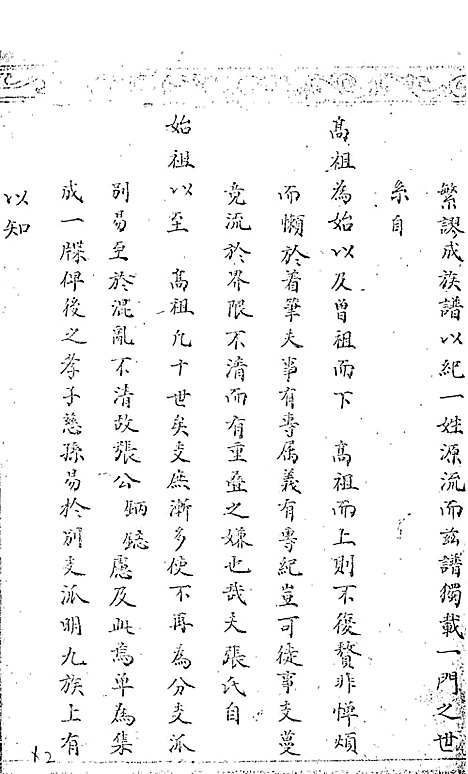 繁謬成族譜以紀一姓源流而茲譜獨載一門之世
系自
高祖為始以及曾祖而下　高祖而上則不復贅非憚煩
而懶於著筆夫事有專属義有專紀豈可徒事支蔓
竟流於界限不清而有重叠之嫌也哉夫張氏自
始祖以至　高祖凢十世矣支庶漸多使不再為分支派
別易至於混亂不清故張公　鋕慮及此為单為集
成一牒俾後之孝子慈孫易於別支派明九族上有
以知
12